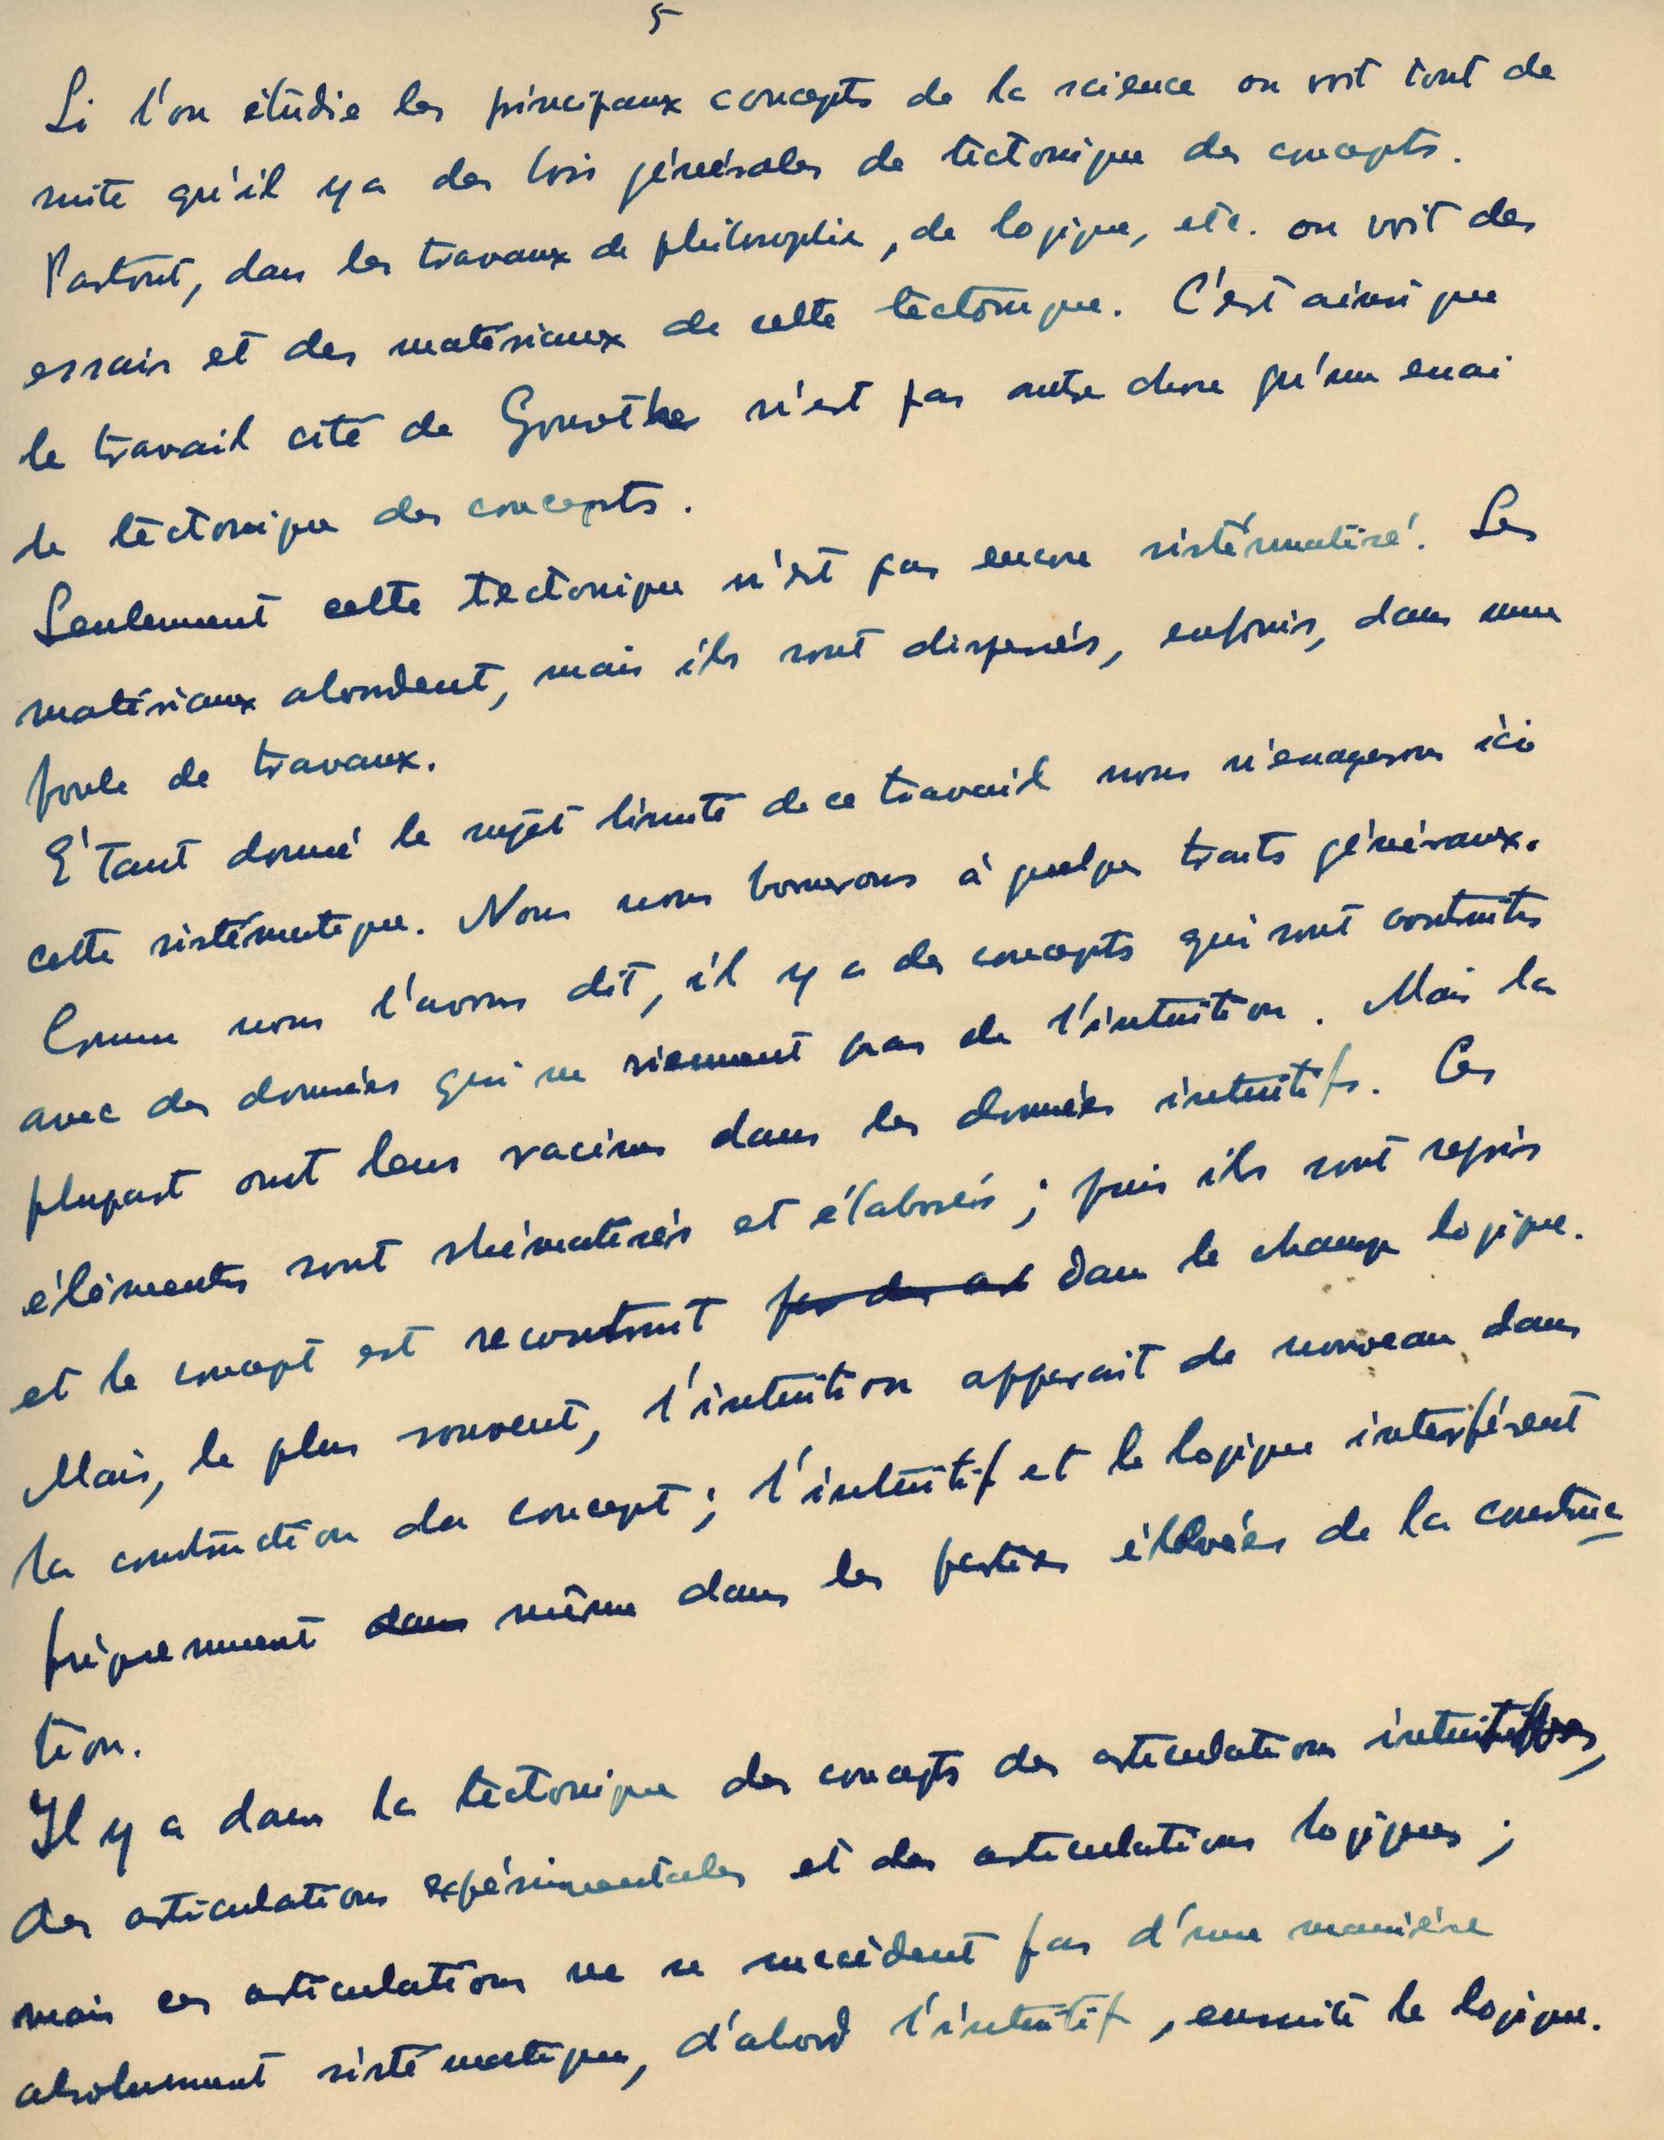 5
Si l'on étudie les principaux concepts de la science on voit tout de
suite qu'il y a des lois générales de tectonique des concepts.
Partout, dans les travaux de philosophie, de logique, etc. on voit des
essais et des matériaux de cette tectonique. C'est ainsi que
le travail cité de Gonseth n'est pas autre chose qu'un essai
de tectonique des concepts.
Seulement cette tectonique n'est pas encore sistématisé. Les
matériaux abondent, mais ils sont dispersés, enfouis, dans une
foule de travaux.
E'tant donné le sujet limité de ce travail nous n'envisagerons ici
cette sistématique. Nous nous bornerons à quelques traits généraux.
Comme nous l'avons dit, il y a des concepts qui sont construits
avec des données qui ne viennent pas de l'intuition. Mais la
plupart ont leurs racines dans les données intuitifs. Ces
élèments sont shématisés et élaborés ; puis ils sont repris
et le concept est reconstruit dans le champ logique.
Mais, le plus souvent, l'intuition apparait de nouveau dans
la construction du concept ; l'intuitif et le logique interfèrent
fréquemment dans même dans les parties élévées de la construc
tion.
Il y a dans la tectonique des concepts des articulations intuitives,
des articulations expérimentales et des articulations logiques ;
mais ces articulations ne se succèdent pas d'une manière
absolument sistématique, d'abord l'intuitif, ensuite le logique.